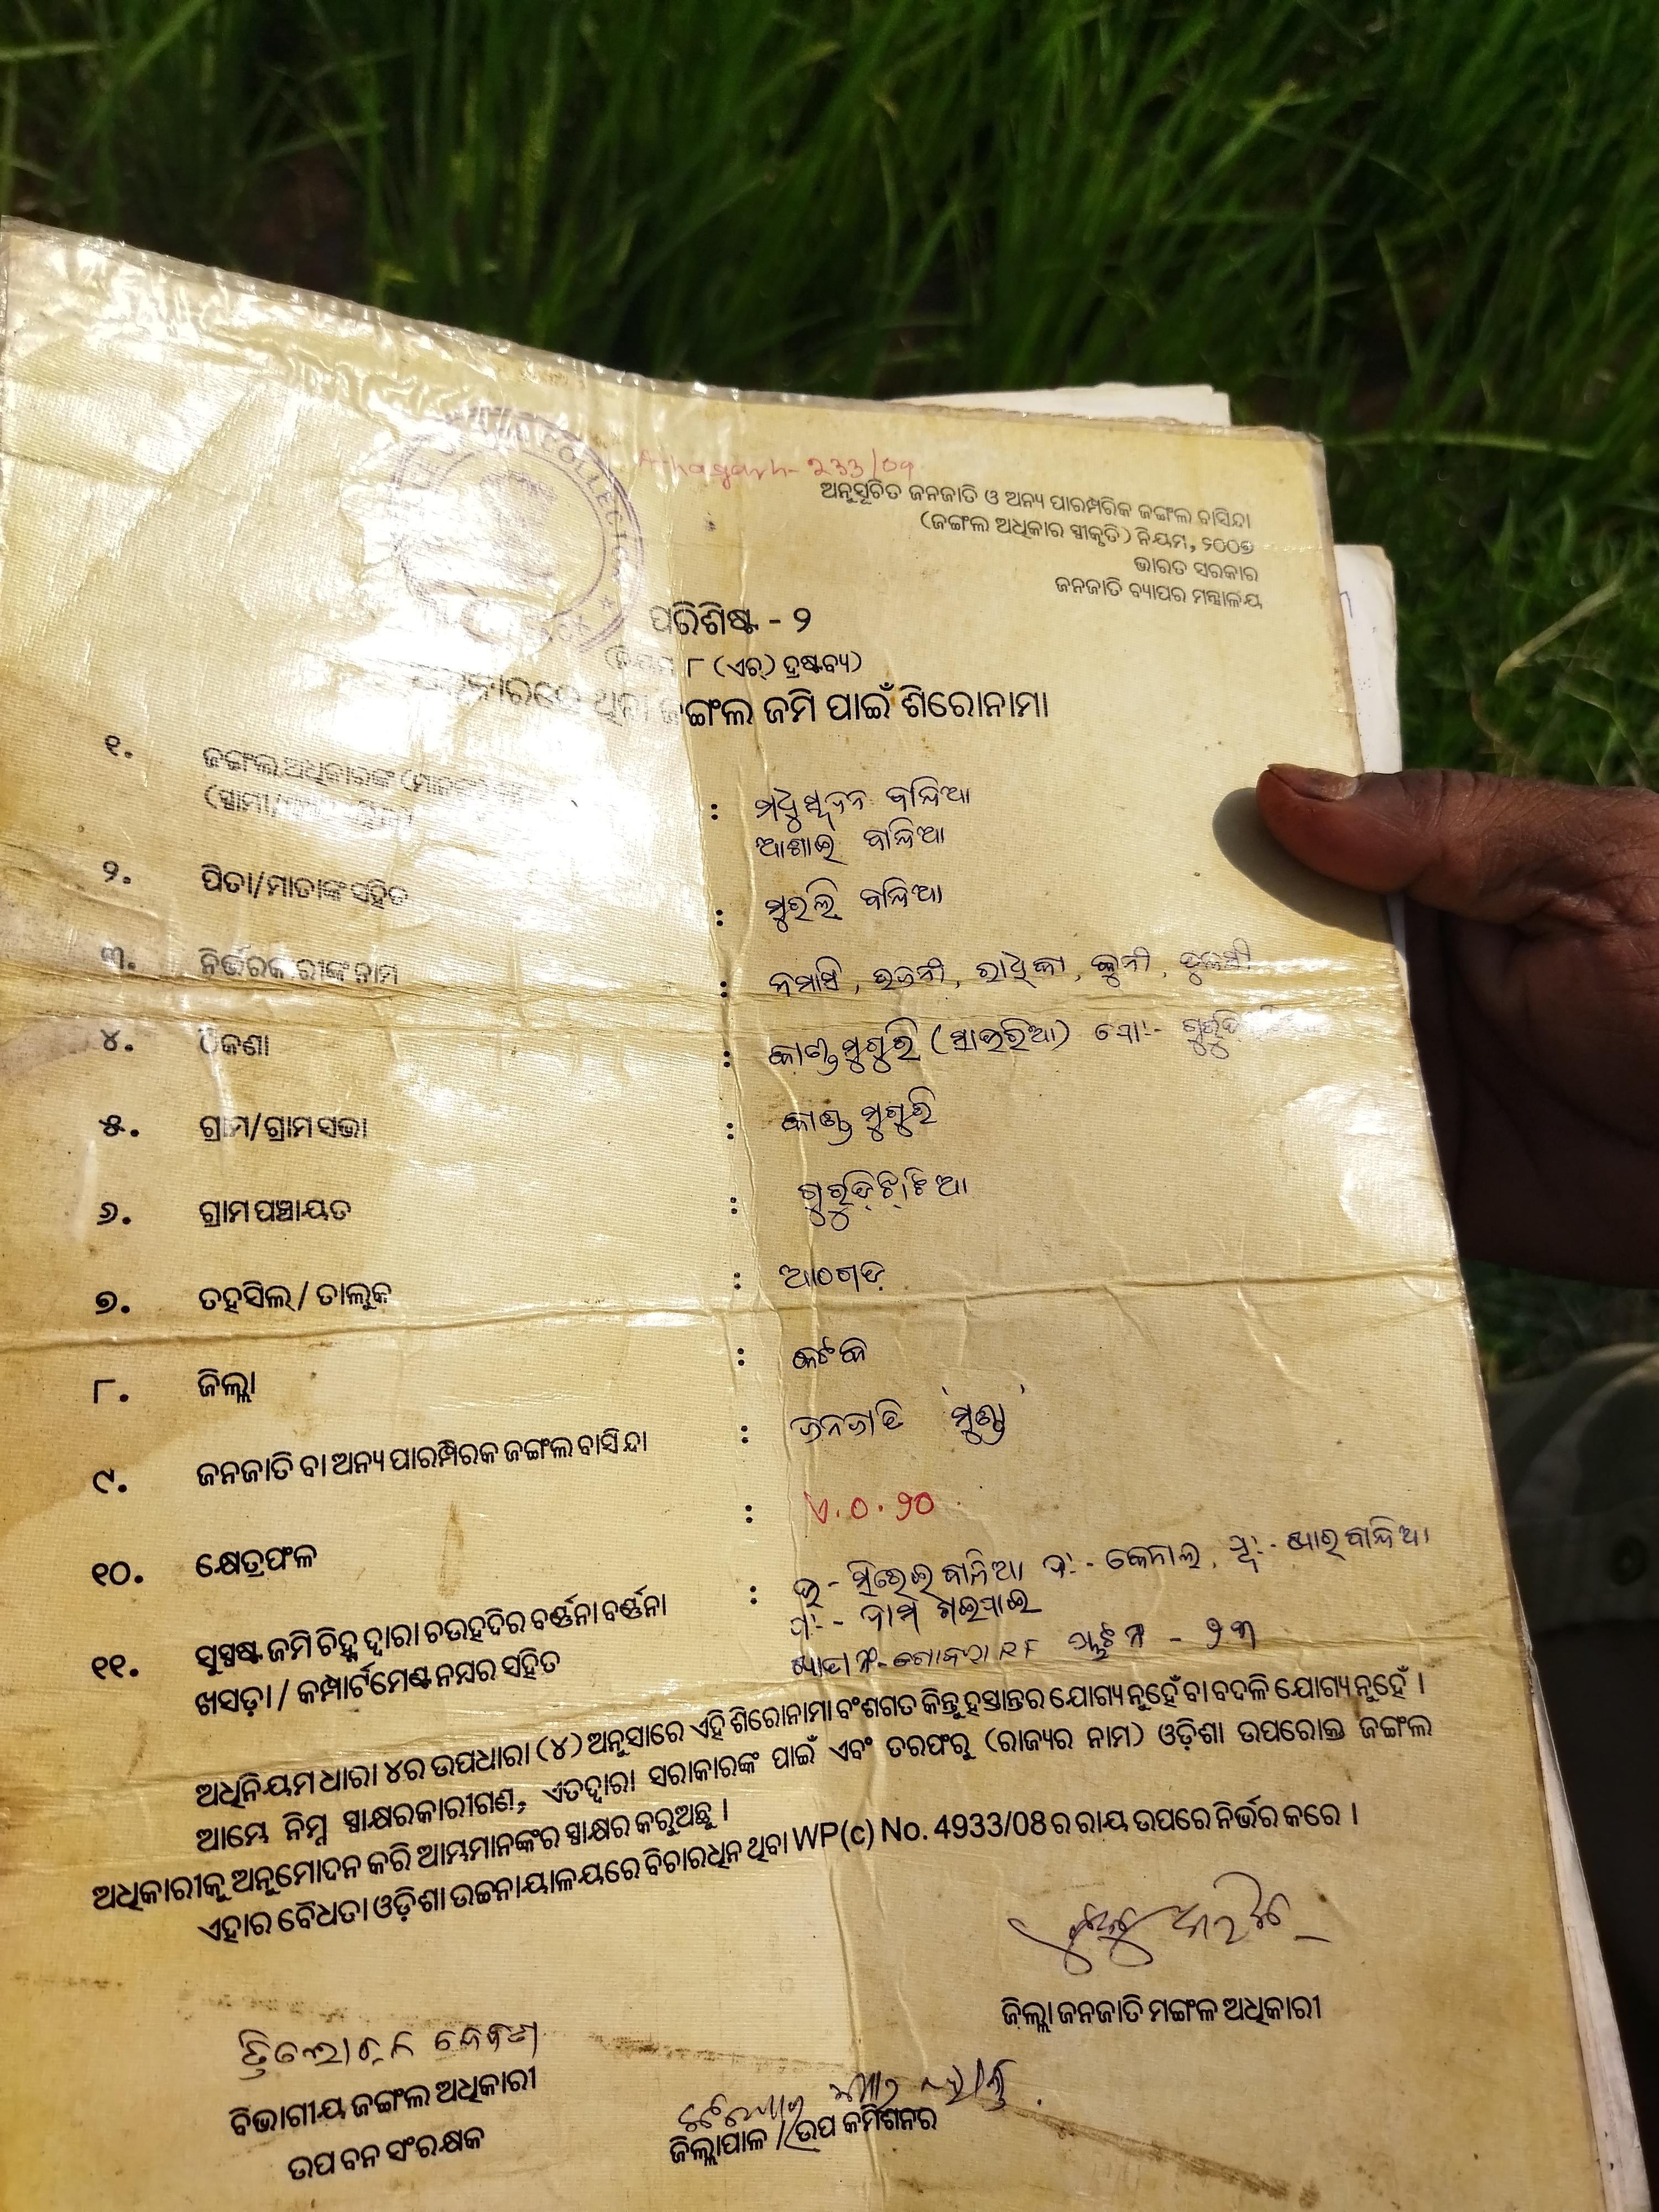 Athagarh- 233/09
ଅନୁସୂଚିତ ଜନଜାତି ଓ ଅନ୍ୟ ପାରମ୍ପରିକ ଜଙ୍ଗଲ ବାସିନ୍ଦା
(ଜଙ୍ଗଲ ଅଧିକାର ସ୍ୱୀକୃତି) ନିୟମ, ୨୦୦୭
ଭାରତ ସରକାର
ଜନଜାତି ବ୍ୟାପର ମନ୍ତ୍ରାଳୟ
ପରିଶିଷ୍ଟ - ୨
୮ (ଏଚ୍) ଦ୍ରଷ୍ଟବ୍ୟ)
ଜଙ୍ଗଲ ଜମି ପାଇଁ ଶିରୋନାମା
୧. ଜଙ୍ଗଲ ଅଧିକାରଙ୍କ : ମଧୁସୂଦନ ବାନ୍ଦିଆ
ଆଶାଇ ବାନ୍ଦିଆ
୨. ପିତା/ମାତାଙ୍କ ସହିତ : ମୁରଲି ବାନ୍ଦିଆ
୩. ନିର୍ଭରକାରୀଙ୍କ ନାମ : ରାଧିକା, କୁନୀ, ତୁଳସୀ
୪. ଠିକଣା : କାଣ୍ଡମୁଗୁରି
୫. ଗ୍ରାମ/ଗ୍ରାମସଭା : କାଣ୍ଡମୁଗୁରି
୬. ଗ୍ରାମପଞ୍ଚାୟତ : ଗୁରୁଡ଼ିଝାଟିଆ
୭. ତହସିଲ / ତାଲୁକ : ଆଠଗଡ଼
୮. ଜିଲ୍ଲା : କଟକ
୯. ଜନଜାତି ବା ଅନ୍ୟ ପାରମ୍ପରିକ ଜଙ୍ଗଲ ବାସିନ୍ଦା : ଜନଜାତି 'ମୁଣ୍ଡା'
୧୦. କ୍ଷେତ୍ରଫଳ : ଏ.୦.୨୦
୧୧. ସୁସ୍ପଷ୍ଟ ଜମି ଚିହ୍ନ ଦ୍ୱାରା ଚଉହଦିର ବର୍ଣ୍ଣନା ବର୍ଣ୍ଣନା : ଉ - ବାନ୍ଦିଆ ଦଃ- କେନାଲ, ପୂଃ-
ଖସଡ଼ା / କମ୍ପାର୍ଟମେଣ୍ଟ ନମ୍ବର ସହିତ ପଃ- ରାମ ଗଇପାଇ
ପ୍ଲଟ ନଂ - ୨୩
ଅଧିନିୟମ ଧାରା ୪ର ଉପଧାରା (୪) ଅନୁସାରେ ଏହି ଶିରୋନାମା ବଂଶଗତ କିନ୍ତୁ ହସ୍ତାନ୍ତର ଯୋଗ୍ୟ ନୁହେଁ ବା ବଦଳି ଯୋଗ୍ୟ ନୁହେଁ ।
ଆମ୍ଭେ ନିମ୍ନ ସ୍ୱାକ୍ଷରକାରୀଗଣ, ଏତଦ୍ଦ୍ୱାରା ସରାକାରଙ୍କ ପାଇଁ ଏବଂ ତରଫରୁ (ରାଜ୍ୟର ନାମ) ଓଡ଼ିଶା ଉପରୋକ୍ତ ଜଙ୍ଗଲ
ଅଧିକାରୀକୁ ଅନୁମୋଦନ କରି ଆମ୍ଭମାନଙ୍କର ସ୍ୱାକ୍ଷର କରୁଅଛୁ ।
ଏହାର ବୈଧତା ଓଡ଼ିଶା ଉଚ୍ଚନାୟାଳୟରେ ବିଚାରଧିନ ଥିବା WP(c) No. 4933/08 ର ରାୟ ଉପରେ ନିର୍ଭର କରେ ।
ଜିଲ୍ଲା ଜନଜାତି ମଙ୍ଗଳ ଅଧିକାରୀ
ବିଭାଗୀୟ ଜଙ୍ଗଲ ଅଧିକାରୀ
ଉପ ବନ ସଂରକ୍ଷକ
ଜିଲ୍ଲାପାଳ / ଉପ କମିଶନର